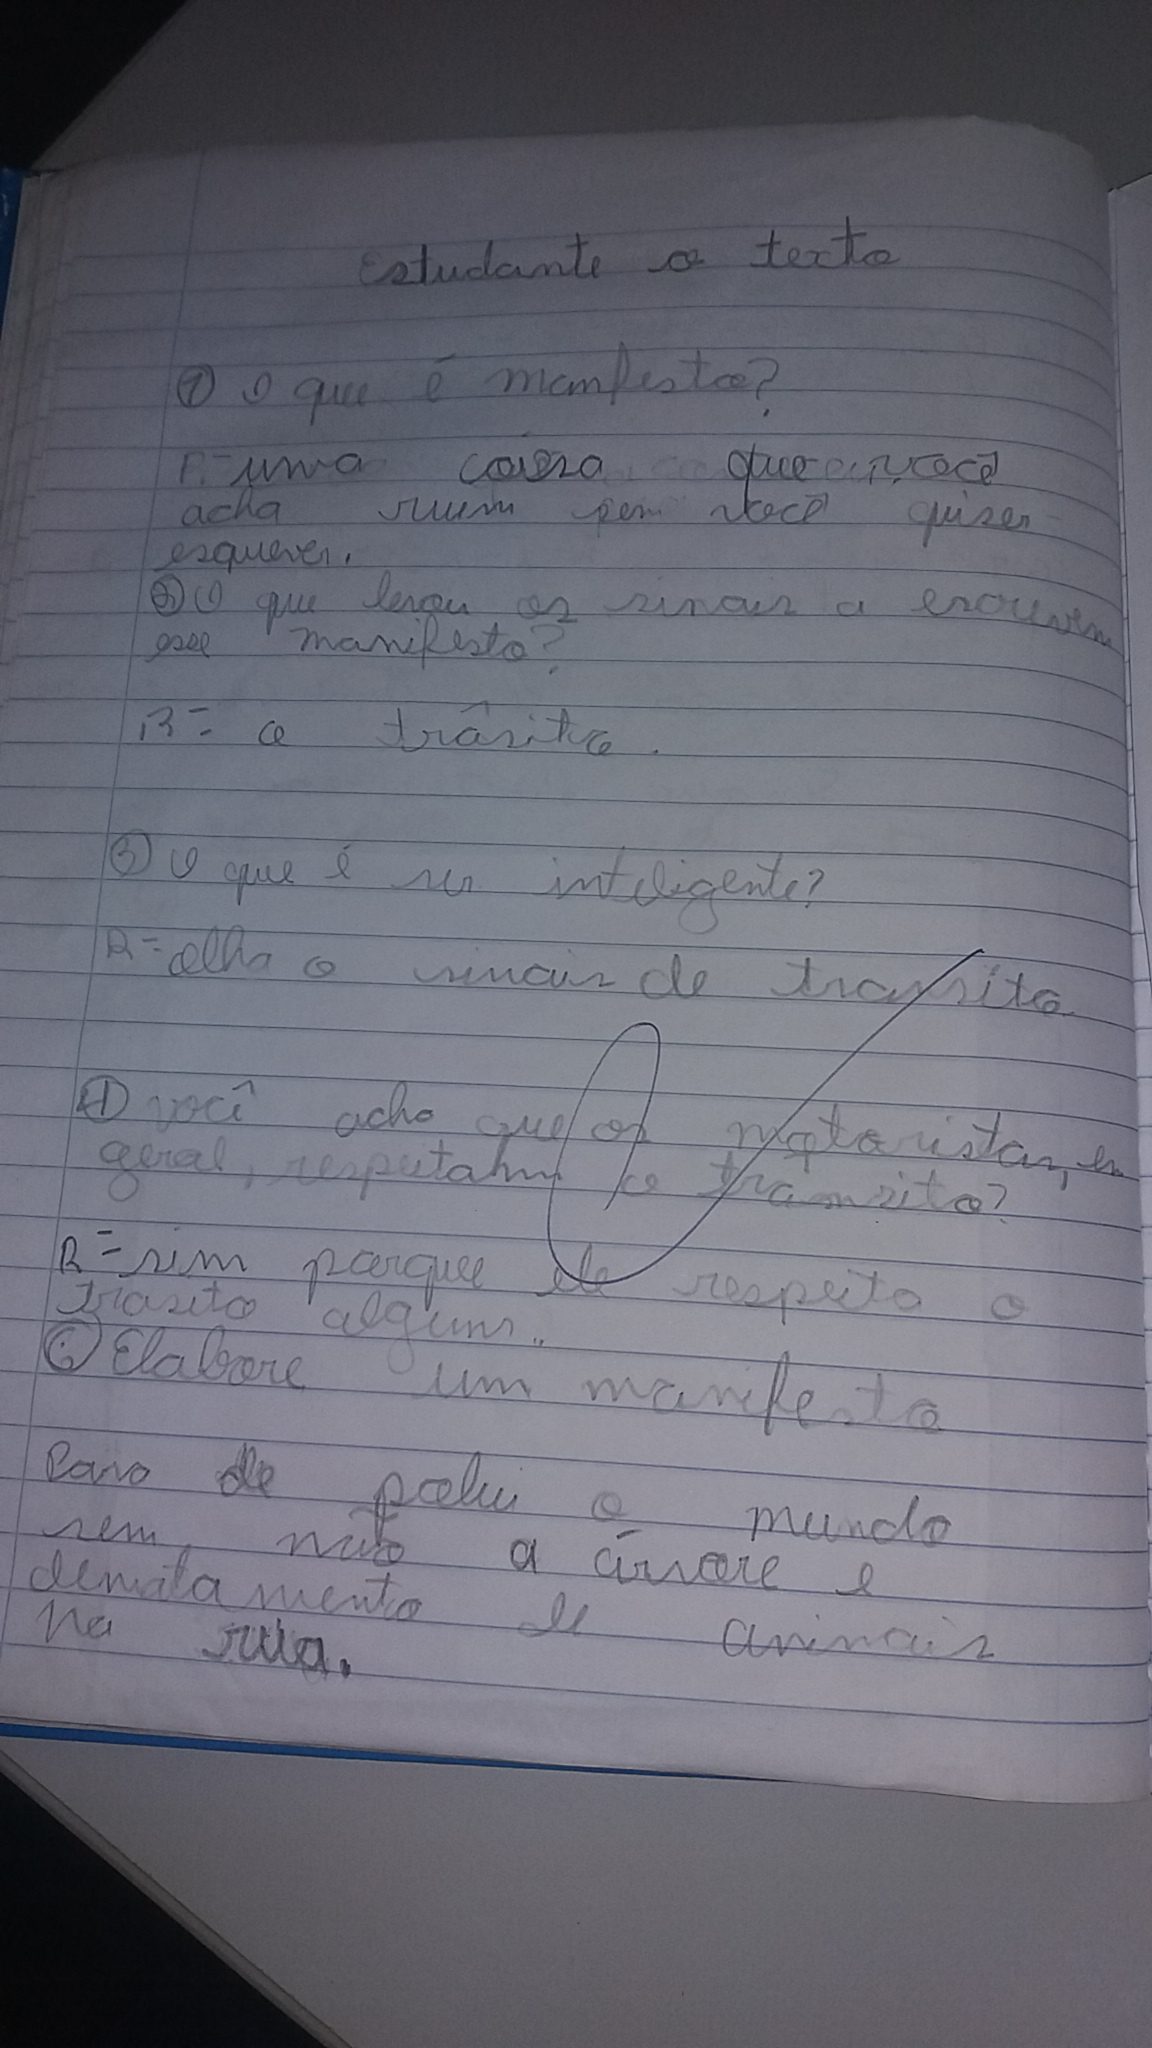 Estudante o texto
① O que é manfesto?
R=uma coisa que você
acha ruim você quiser
esquever.
② O que levou os sinais a escreverem
esse manifesto?
R= o trâsito.
③ O que é ser inteligente?
R=olha o sinais de transito
④ você acho que os motoristas, em
geral, respeitam o transito?
R=sim porque ele respeito o
trasito alguns.
Elabore um manifesto
de polui o mundo
sem não a árvore e
dematamento de animais
na rua.